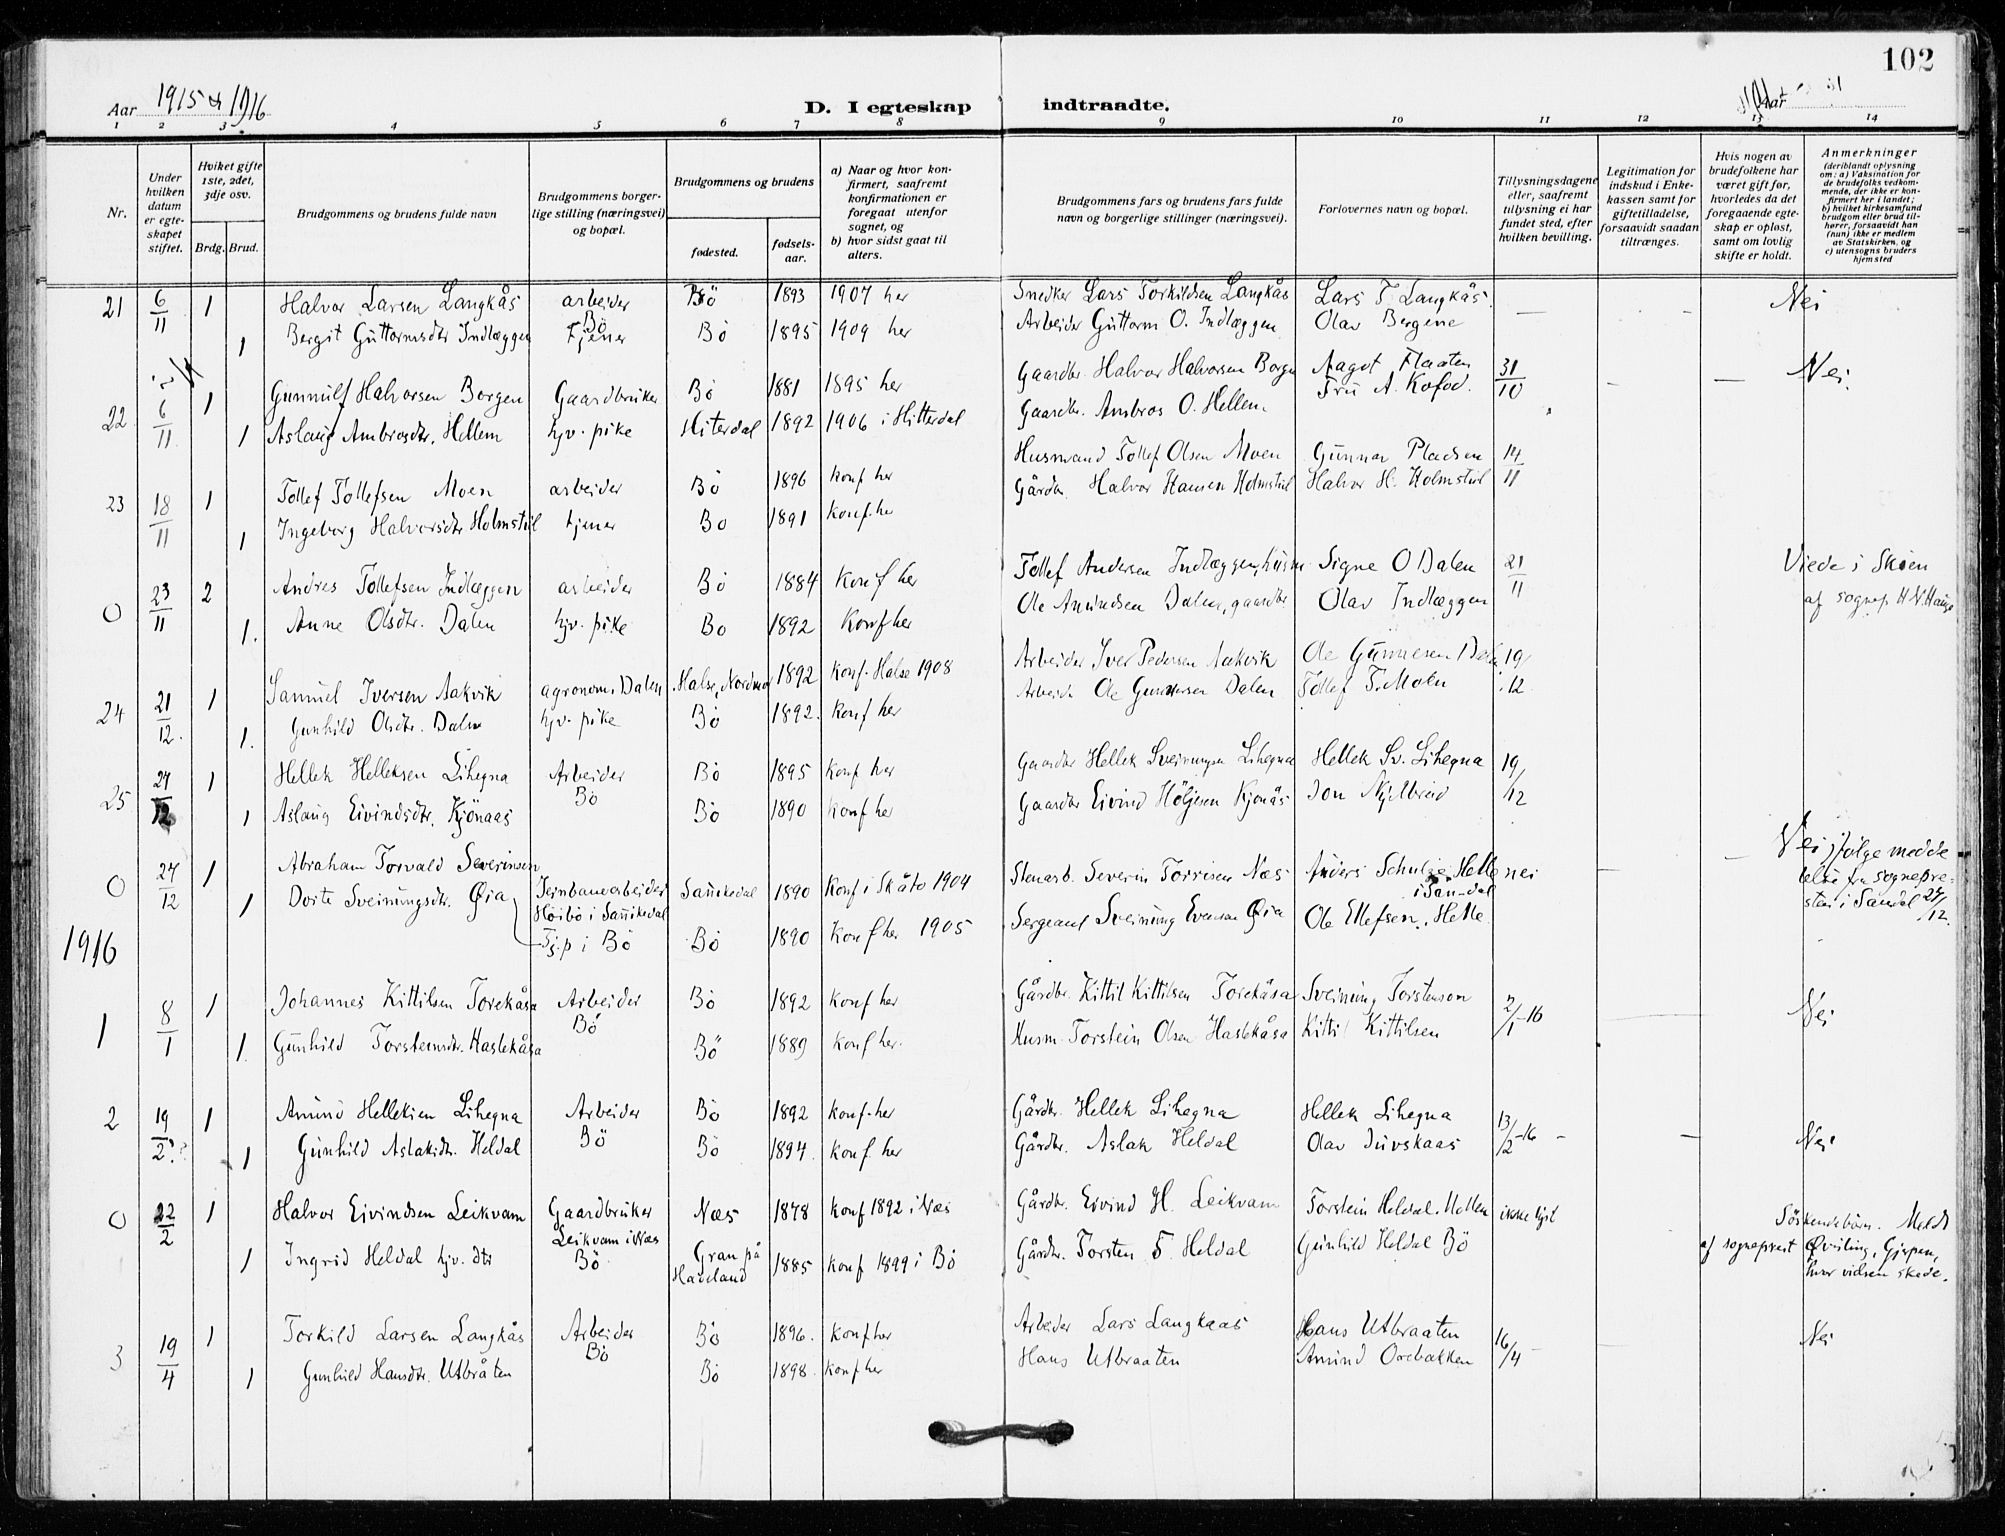 102
Aar 1915 & 1916
D. I egteskap indtraadte.
Aar
1 2 3 4 5 6 7 8 9 10 11 12 13 14
Nr.
Under hvilken datum er egteskapet stiftet.
Hviket gifte 1ste, 2det, 3dje osv.
Brdg. Brud.
Brudgommens og brudens fulde navn
Brudgommens borgerlige stilling (næringsvei) og bopæl.
Brudgommens og brudens
fødested.
fødselsaar.
a) Naar og hvor konfirmert, saafremt konfirmationen er foregaat utenfor sognet, og
b) hvor sidst gaat til alters.
Brudgommens fars og brudens fars fulde navn og borgerlige stillinger (næringsvei).
Forlovernes navn og bopæl.
Tillysningsdagene eller, saafremt tillysning ei har fundet sted, efter hvilken bevilling.
Legitimation for indskud i Enkekassen samt for giftetilladelse, forsaavidt saadan tiltrænges.
Hvis nogen av brudefolkene har været gift før, hvorledes da det foregaaende egteskap er opløst, samt om lovlig skifte er holdt.
Anmerkninger (deriblandt oplysning om: a) Vaksination for de brudefolks vedkommende, der ikke er konfirmert her i landet; b) hvilket kirkesamfund brudgom eller brud tilhører, forsaavidt han (hun) ikke er medlem av Statskirken, og c) utensogns bruders hjemsted
21 6/11 1 Halvor Larsen Langkås arbeider Bö Bö 1893 1907 her Snedker Lars Torkildsen Langkås Lars T Langkås. — Nei
1 Bergit Guttormsdtr Indlæggen tjener Bö 1895 1909 her Arbeider Guttorm O. Indlæggen Olav Bergene
22 6/11 1 Gunnulf Halvorsen Borgen Gaardbruker Bö 1881 1895 her Gaardbr. Halvor Halvorsen Borgen Aagot Flaaten 31/10 — — Nei.
1 Aslaug Ambrosdtr. Hellem hjv. pike Hiterdal 1892 1906 i Hitterdal Gaardbr. Ambros O. Hellem. Fru A. Kofod.
23 18/11 1 Tollef Tollefsen Moen arbeider Bö 1896 konf her Husmand Tollef Olsen Moen Gunnar Pladsen 14/11
1 Ingeborg Halvorsdtr Holmstul tjener Bö 1891 konf. her Gårdbr. Halvor Hansen Holmstul Halvor H. Holmstul
0 23/11 2 Andres Tollefsen Indlæggen arbeider Bö 1884 Konf her Tollef Andersen Indlæggen, husm Signe O Dalen 21/11 Viede i Skien
1. Anne Olsdtr. Dalen hjv. pike Bö 1892 Konf her Ole Amundsen Dalen, gaardbr Olav Indlæggen af sognep. H. N. Hauge
24 21/12 1 Samuel Iversen Aakvik agronom, Dalen Halse, Nordmør 1892 konf. Halse 1908 Arbeider Iver Pedersen Aakvik Ole Gunnersen Dalen 19/12
1. Gunhild Olsdtr. Dalen hjv. pike Bö 1892. Konf her Arbeid. Ole Gunnersen Dalen Tollef T. Moen
25 27/12 1 Hellek Helleksen Lihegna Arbeider Bö Bö 1895 Konf her Gaardbr Hellek Sveinungsen Lihegna Hellek Sv. Lihegna 19/12
1 Aslaug Eivindsdtr. Kjönaas Bö 1890 Konf her Gaardbr Eivind Höljesen Kjonås Jon
0 27/12 1 Abraham Torvald Severinsen Jernbanearbeider Höibö i Sannikedal Sannikedal 1890 Konf i Skåtø 1904 Stenarb. Severin Torrisen Næs Anders Schulze Helle i San-dal nei — — Nei ifølge meddelelse fra sognepresten i Sandal 27/12.
1 Dorte Sveinungsdtr. Øia Tj.p i Bö Bö 1890 Konf her 1905 Sergeant Sveinung Evensen Øia Ole Ellefsen. Helle.
1916
1 8/1 1 Johannes Kittilsen Torekåsa Arbeider Bö Bö 1892 konf her Gårdbr. Kittil Kittilsen Torekåsa Sveinung Torstenson 2/1-16 Nei
1. Gunhild Torsteinsdtr. Haslekåsa Bö 1889 konf her. Husm. Torstein Olsen Haslekåsa Kittil Kittilsen
2 19/2? 1 Amund Helleksen Lihegna Arbeider Bö Bö 1892 konf. her Gårdbr. Hellek Lihegna Hellek Lihegna 13/2-16 — — Nei
1 Gunhild Aslaksdtr. Heldal Bö 1894. konf. her Gårdbr. Aslak Heldal Olav Juvskaas
0 22/2 1 Halvor Eivindsen Leikvam Gaardbruker Leikvam i Næs Næs 1878 konf 1892 i Næs Gårdbr. Eivind H. Leikvam Torstein Heldal. ikke lyst Söskendebörn. Meldt
1 Ingrid Heldal hjv. dtr Bö Gran på Hadeland 1885 konf 1899 i Bö Gårdbr. Torsten T. Heldal Gunhild Heldal Bö af sogneprest Gjerpen, hvor vielsen skede.
3 19/4 1 Torkild Larsen Langkås Arbeider Bö Bö 1896. konf her Arbeider Lars Langkaas Hans Utbraaten 16/4 — Nei
1 Gunhild Hansdtr. Utbråten Bö 1898. konf her Hans Utbraaten Amund Orebakken